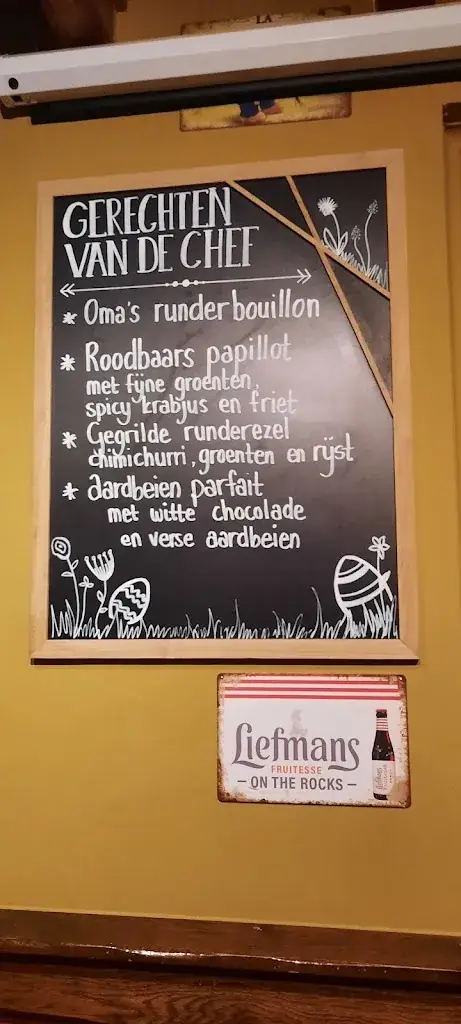 LA
GERECHTEN
VAN DE CHEF
* Oma's runderbouillon
* Roodbaars papillot
met fijne groenten,
spicy krabjus en friet
* Gegrilde runderezel
chimichurri, groenten en rijst
* Aardbeien parfait
met witte chocolade
en verse aardbeien
Liefmans
FRUITESSE
- ON THE ROCKS -